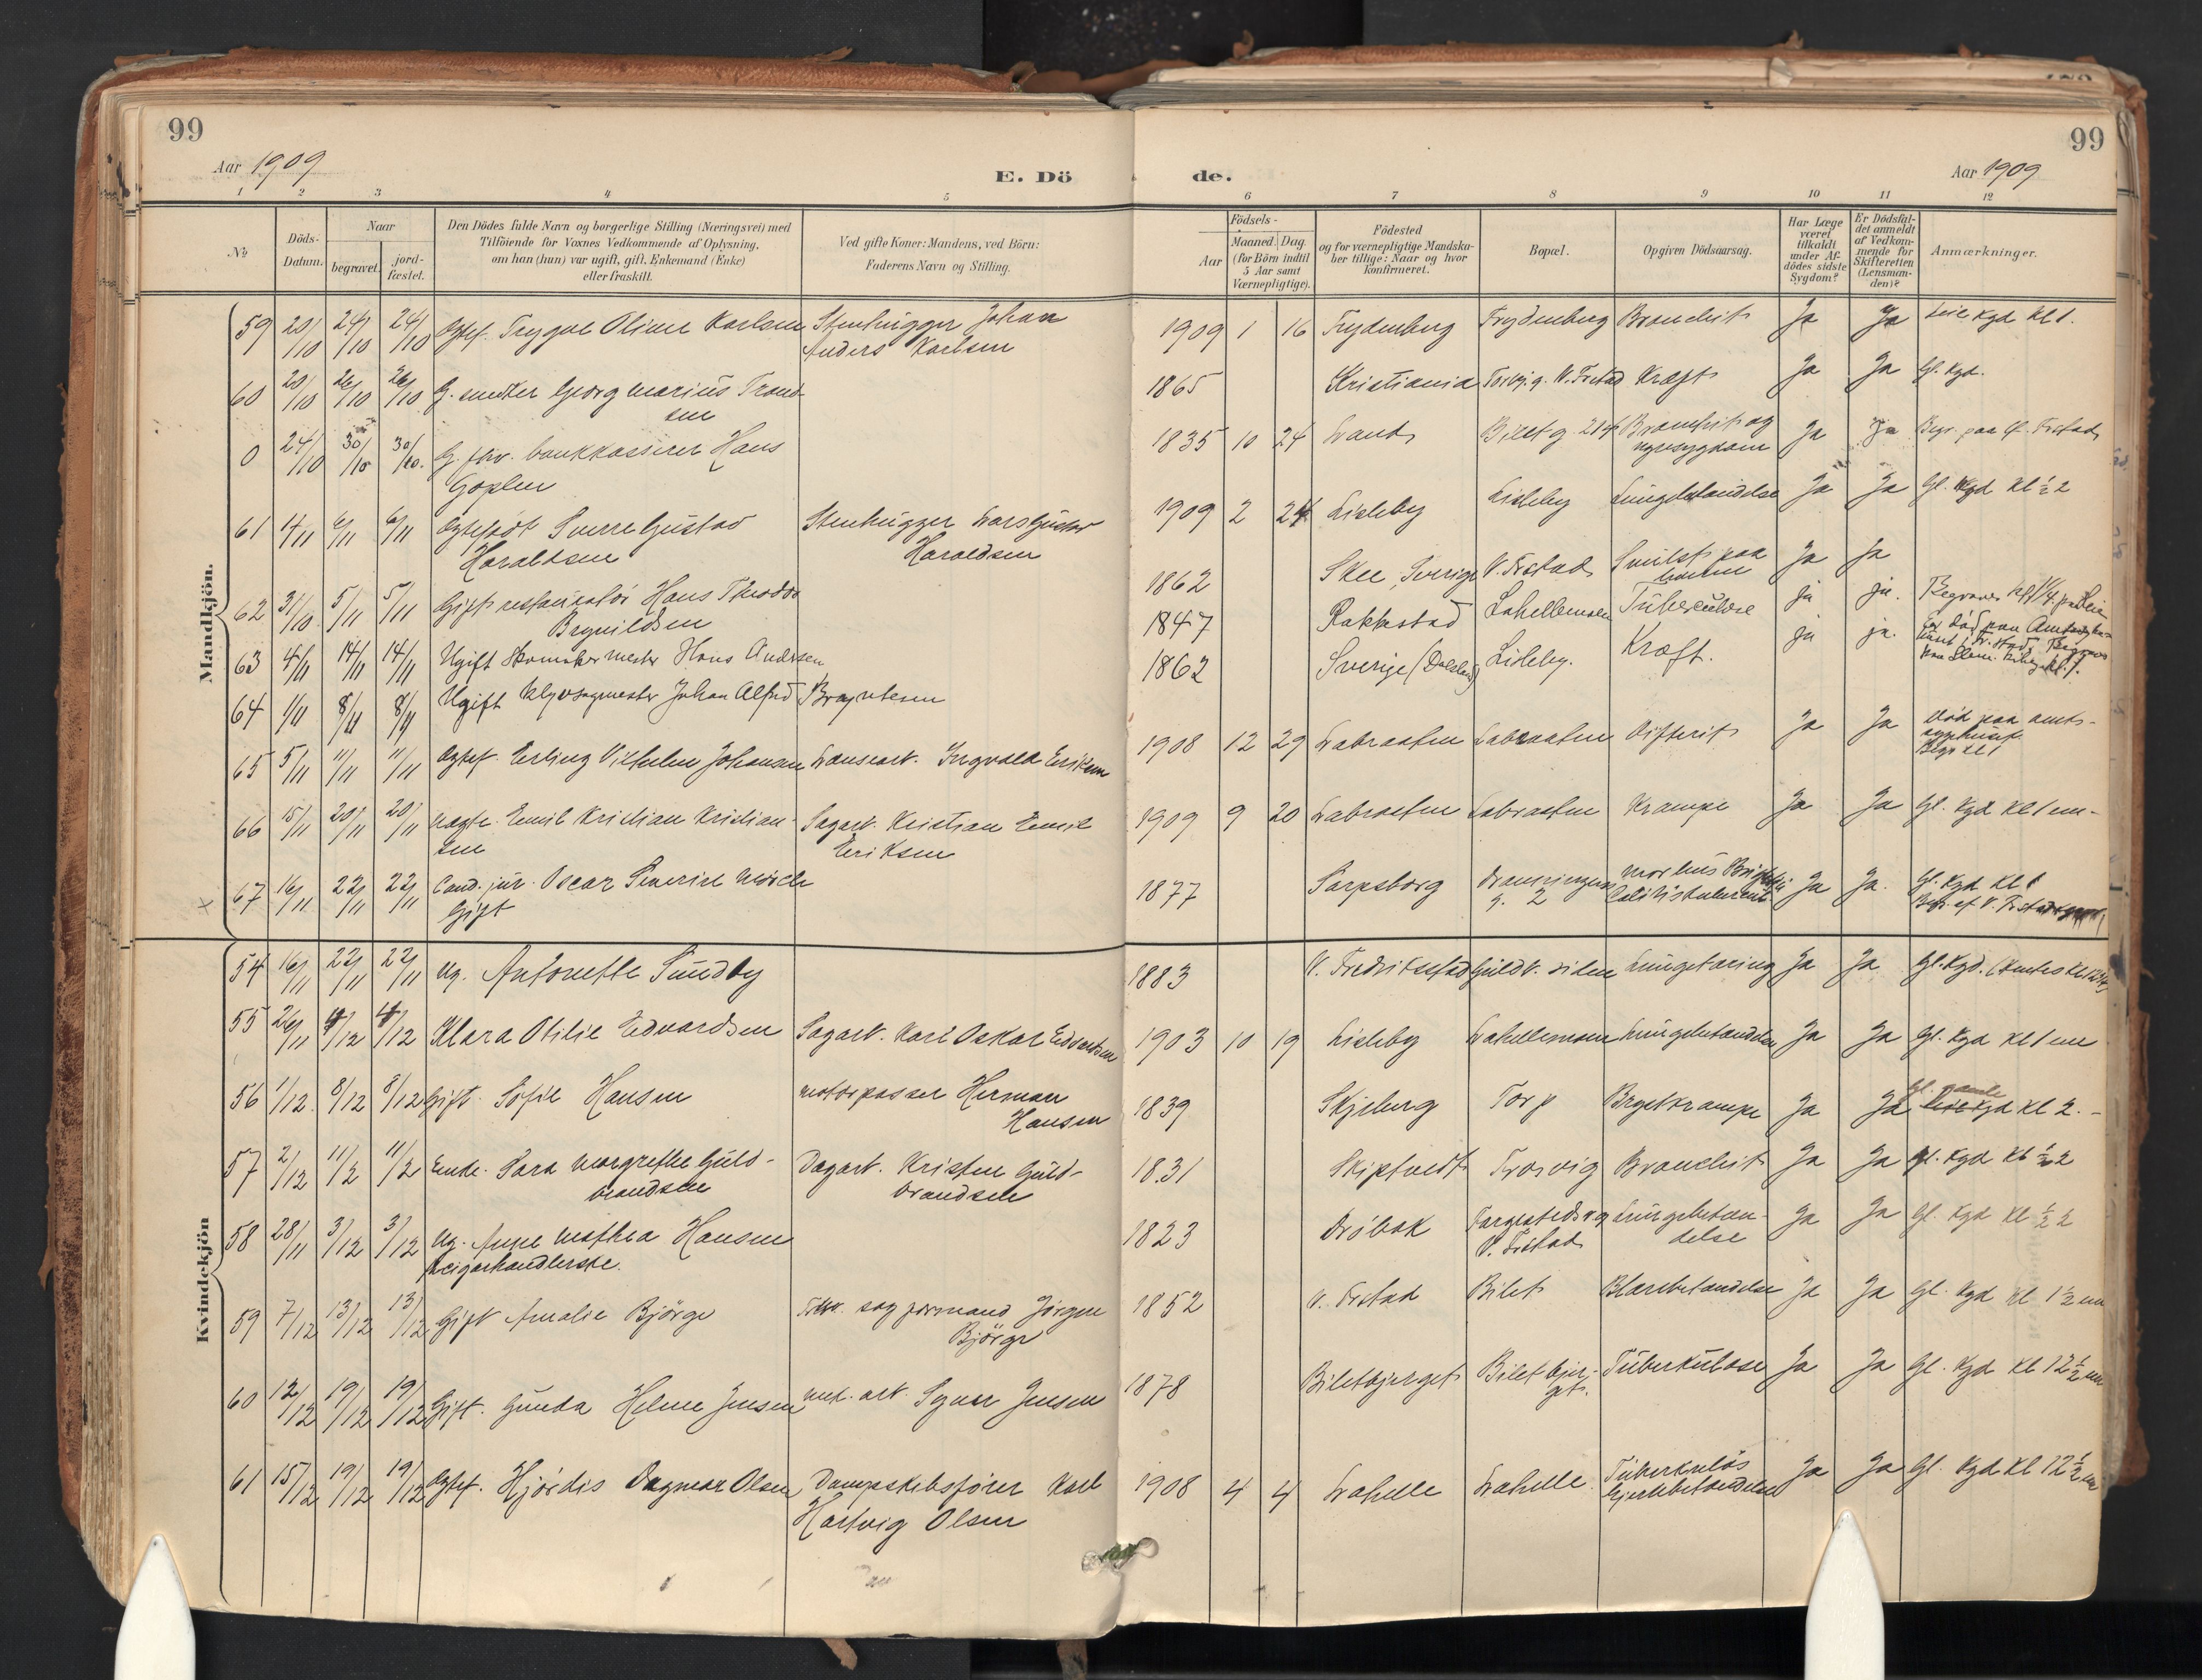 99
Aar 1909
E. Dö
1 2 3 4 5
№
Döds-Datum.
Naar
begravet.
jord-fæstet.
Den Dödes fulde Navn og borgerlige Stilling (Næringsvei) med
Tilföiende for Voxnes Vedkommende af Oplysning,
om han (hun) var ugift, gift, Enkemand (Enke)
eller fraskilt.
Ved gifte Koner: Mandens, ved Börn:
Faderens Navn og Stilling.
Mandkjön.
59 20/10 24/10 24/10 Ogtef. Trygve Olime Karlsen Stenhugger Johan
Anders Karlsen
60 20/10 26/10 26/10 G. smelter Georg Marius Trond-
sen
0 24/10 30/10 30/10. G. fhv. bankkasserer Hans
Goplen
61 4/11 6/11 6/11 Ogtefødt Sverre Gustav Stenhugger Lars Gustav
Haraldsen Haraldsen
62 31/10 5/11 5/11 Gift restauratør Hans Theodor
Brynildsen
63 4/11 14/11 14/11 Ugift Skomakermester Hans Andersen
64 1/11 8/11 8/11 Ugift Klyvsagmester Johan Alfred Bryntesen
65 5/11 11/11 11/11 Ogtef. Erling Vilhelm Johansen Ingvald Eriksen
66 15/11 20/11 20/11 uægte. Emil Kristian Kristian- Sagarb. Kristian Emil
sen Eriksen
67 16/11 22/11 22/11 Cand. jur. Oscar Severin Mörch
Gift
Kvindekjön
54 16/11 22/11 22/11 Ug. Antonette Sundby
55 26/11 4/12 4/12 Klara Otilie Edvardsen Sagarb. Karl Oskar Edvardsen
56 1/12 8/12 8/12 Gift. Sofie Hansen motorpasser Herman
Hansen
57 2/12 11/12 11/12 Enke. Sara Margrethe Guld- Dagarb. Kristen Guld-
brandsen brandsen
58 28/11 3/12 3/12 Ug. Anne Mathea Hansen
cigarhandlerske.
59 7/12 13/12 13/12 Gift Amalie Björge sagformand Jørgen
Björge
60 12/12 19/12 19/12 Gift. Gunda Helene Jensen mek. arb. Signar Jensen
61 15/12 19/12 19/12 Ogtef. Hjördis Dagmar Olsen Dampskibsfører Karl
Hartvig Olsen
99
de.
Aar 1909
6 7 8 9 10 11 12
Födsels-
Aar
Maaned. Dag.
(for Börn indtil
5 Aar samt
Værnepligtige).
Födested
og for værnepligtige Mandska-
ber tillige: Naar og hvor
konfirmeret.
Bopæl.
Opgiven Dödsaarsag.
Har Læge
været
tilkaldt
under Af-
dödes sidste
Sygdom?
Er Dödsfal-
det anmeldt
af Vedkom-
mende for
Skifteretten
(Lensman-
den)?
Anmærkninger.
1909 1 16 Trydenberg Trydenberg Bronchit Ja Ja Leie Kgd kl 1.
1865 Kristiania V. Frstad Kræft Ja Ja Gl. Kgd.
1835 10 24 Lands Bilet g 214 Bronchit og Ja Ja Begr. paa Frstad
nyresygdom
1909 2 24 Lisleby Lisleby Lungebetændelse Ja Ja Gl. Kgd kl ½ 2
1862 Skee, Sverige V. Frstad paa Ja Ja
1847 Rakkestad Lahellemoen Tuberculose ja ja. Begraves
1862 Sverige (Dalsland) Lisleby. Kræft. ja ja. død paa Amtssyge-
1908 12 29 Labraaten Labraaten Difterit Ja Ja Död paa amts-
sygehuset.
Begr kl 1
1909 9 20 Labraaten Labraaten Krampe Ja Ja Gl. Kgd kl 1 em-
1877 Sarpsborg g. 2 morbus Brightii Ja Ja. Gl. Kgd kl 1
1883 V. Fredrikstad Guldb. siden Lungetæring Ja Ja Gl. Kgd.
1903 10 19 Lisleby Lahellemoen Lungebetændelse Ja Ja Gl. Kgd kl 1 em
1839 Skjeberg Torp Brystkrampe Ja Ja Gl. gamle Kgd kl 2.-
1831 Skiptvedt Trosvig Bronchit Ja Ja Gl. Kgd kl ½ 2
1823 Dröbak Lungebetæn- Ja Ja Gl. Kgd kl ½ 2
V. Frstad delse
1852 V. Frstad Bilet Blærebetændelse Ja Ja Gl. Kgd kl 1 ½ em
1878 Biletbjerget Biletbjer- Tuberkulose Ja Ja Gl. Kgd kl 12 ½ em
get.
1908 4 4 Lahelle Lahelle Tuberkuløs Ja Ja Gl. Kgd kl 12 ½ em
hjernebetændelse